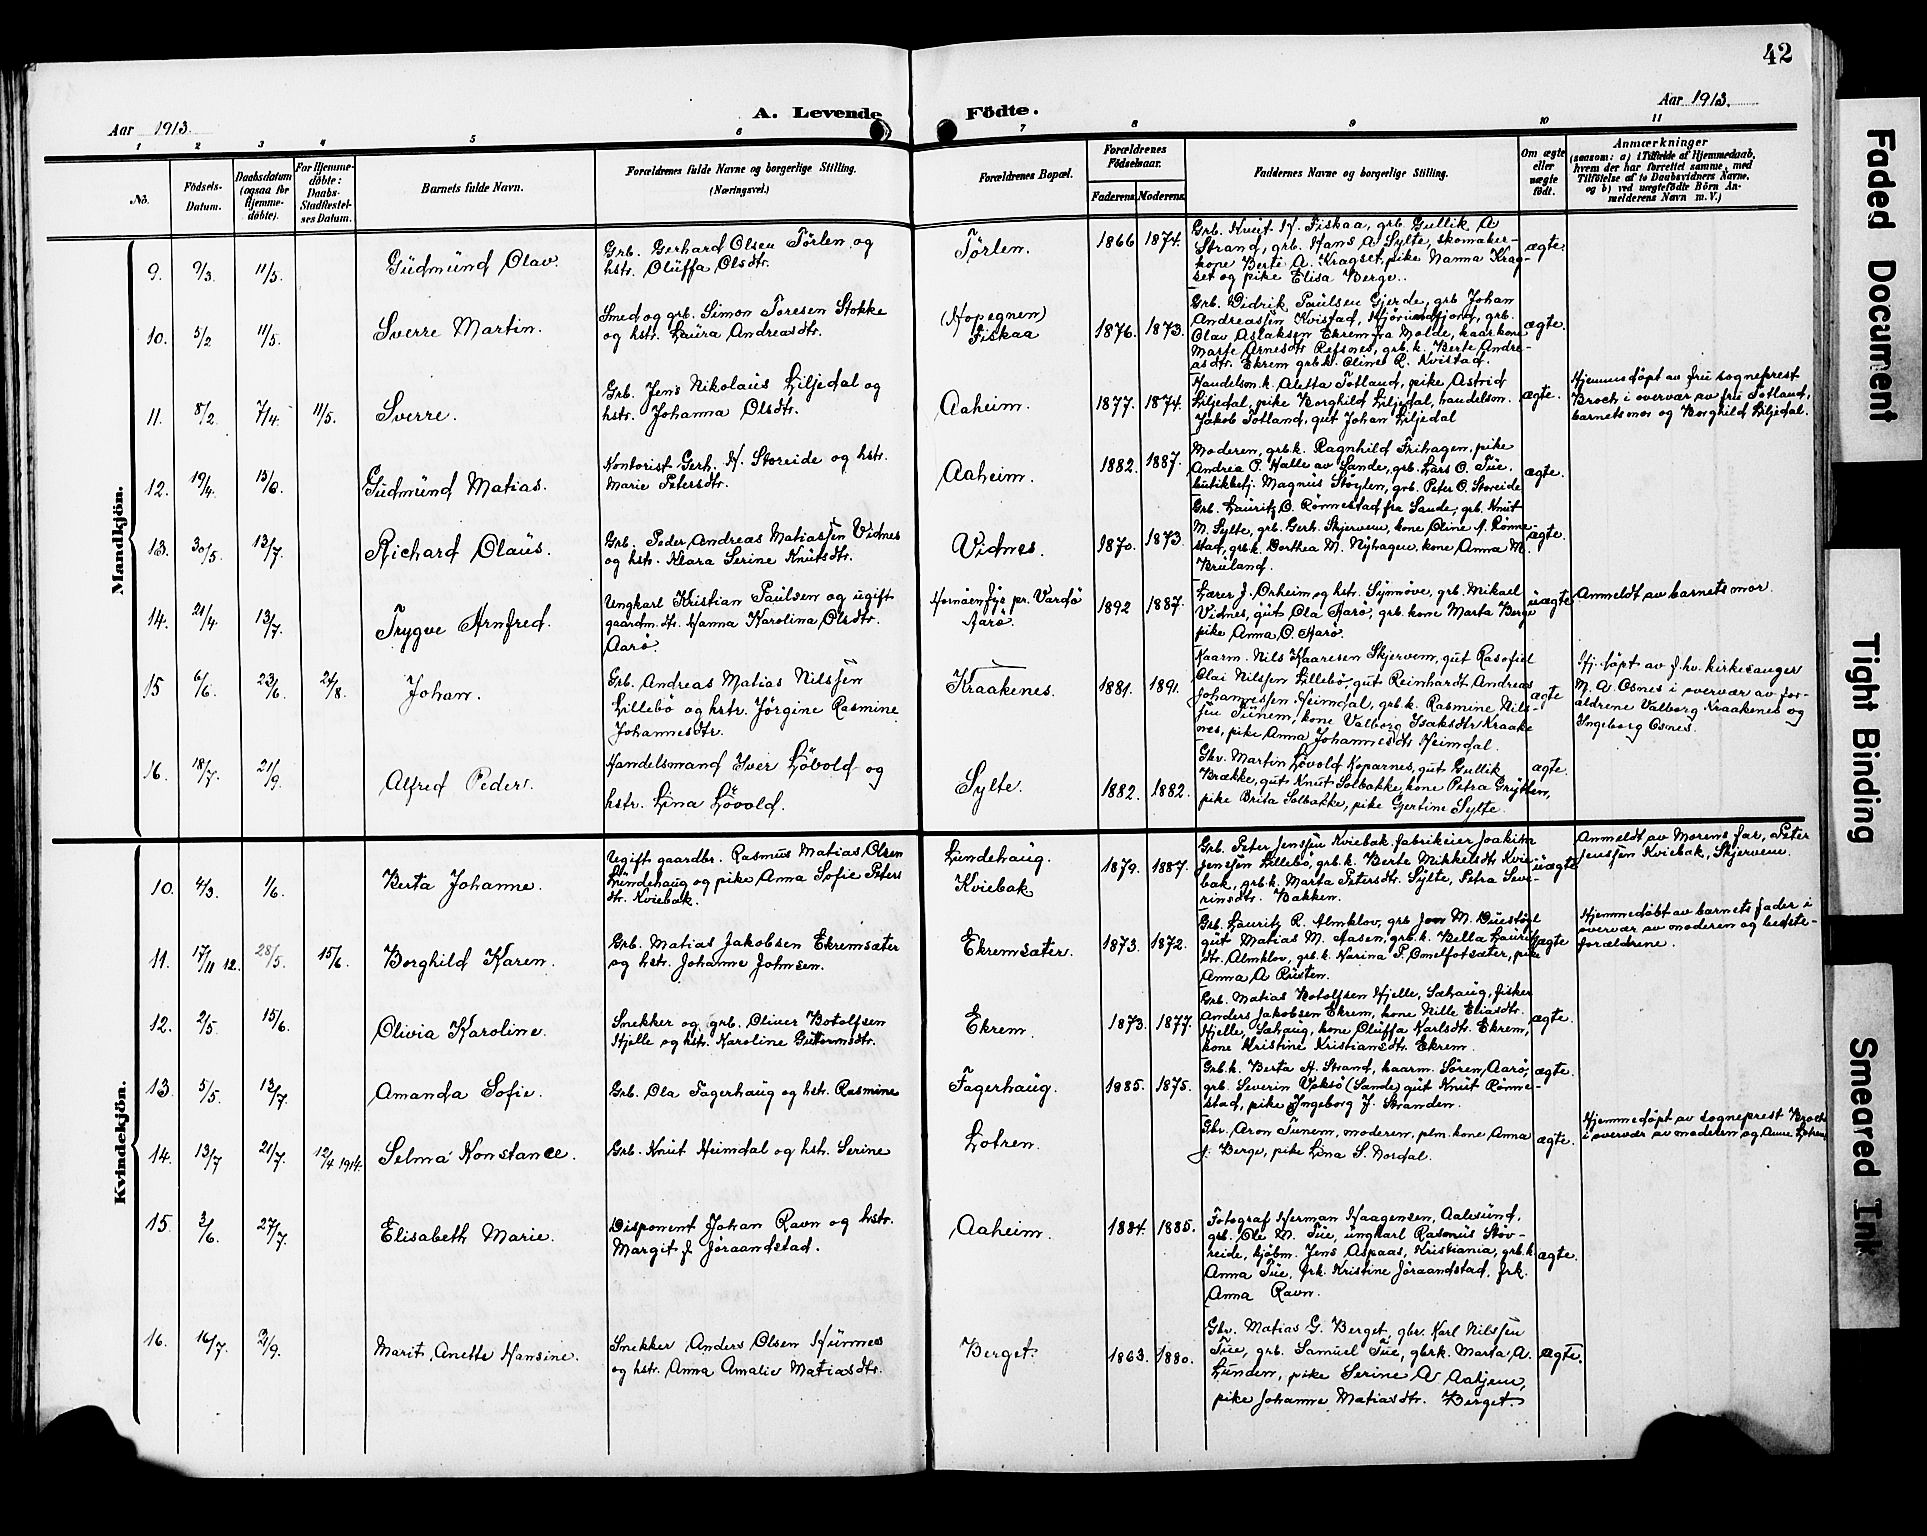 42
Aar 1913.
A. Levende Födte.
Aar 1913.
1 2 3 4 5 6 7 8 9 10 11
No.
Födsels-Datum.
Daabsdatum (ogsaa for Hjemme-döbte).
For Hjemme-döbte: Daabs-Stadfæstelses Datum.
Barnets fulde Navn.
Forældrenes fulde Navne og borgerlige Stilling. (Næringsvei.)
Forældrenes Bopæl.
Forældrenes Födselsaar.
Faderens. Moderens.
Faddernes Navne og borgerlige Stilling.
Om ægte eller uægte födt.
Anmærkninger
(saasom: a) i Tilfælde af Hjemmedaab, hvem der har forrettet samme, med Tilföielse af to Daabsvidners Navne, og b) ved uægtefödte Börn Anmelderens Navn m. V.)
Mandkjön.
9. 9/3. 11/5. Gudmund Olav.
Grb. Gerhard Olsen Törlen og
hstr. Oluffa Olsdtr.
Törlen. 1866 1874.
Grb. Knut N. Fiskaa, grb. Gullik A
Strand, grb. Hans A. Sylte, skomaker-
kone Berte A. Kragset, pike Nanna Krag-
set og pike Elisa Berge.
ægte.
10. 5/2 11/5. Sverre Martin.
Smed og grb. Simon Toresen Stokke
og hstr. Laura Andreasdtr.
(Hopegnen)
Fiskaa 1876. 1873.
Grb. Didrik Paulsen Gjerde, grb Johan
Andreassen Kvistad, Hjörundfjord, grb.
Olav Aslaksen Ekrem fra Molde, kaarkone
Marte Arnesdtr Refsnes, grb.k. Berte Andre-
asdtr. Ekrem grb.k. Oline R. Kvistad.
ægte.
11. 8/2 7/4. 11/5. Sverre.
Grb. Jens Nikolaus Liljedal og
hstr. Johanna Olsdtr.
Aaheim. 1877. 1874.
Handelsm.k. Aletta Totland, pike Astrid
Liljedal, pike Borghild Liljedal, handelsm.
Jakob Totland, gut Johan Liljedal
ægte.
Hjemmedöpt av fru sogneprest
Broch i overvær av fru Totland,
barnets mor og Borghild Liljedal.
12. 19/4. 15/6. Gudmund Matias.
Kontorist Gerh. N. Storeide og hstr.
Marie Petersdtr.
Aaheim. 1882. 1887.
Moderen, grb.k. Ragnhild Frihagen, pike
Andrea P. Halle av Sande, grb. Lars O. Tue,
butikkbetj. Magnus Stöylen, grb. Peter O. Storeide
ægte.
13. 30/5. 13/7. Richard Olaus.
Grb. Peder Andreas Matiassen Vidnes
og hstr. Klara Serine Knutsdtr.
Vidnes. 1870. 1873
Grb. Lauritz O. Rönnestad fra Sande, grb. Knut
M. Sylte, grb. Gerh. Skjervem, kone Oline A. Rönne-
stad, grb.k. Dorthea M. Nyhagen, kone Anna M.
Bruland.
ægte.
14. 21/4. 13/7. Trygve Arnfred.
Ungkarl Kristian Paulsen og ugift
gaardm.dtr. Hanna Karolina Olsdtr.
Aarö.
Hornöen fyr pr. Vardö
Aarö. 1892 1887.
Lærer J. Orheim og hstr. Synnöve, grb. Mikael
Vidnes, gut Ola Aarö, grb. kone Marta Berge
pike Anna O. Aarö.
uægte
Anmeldt av barnets mor.
15 6/6. 23/6. 24/8. Johan.
Grb. Andreas Matias Nilssen
Lillebö og hstr. Jörgine Rasmine
Johannesdtr.
Kraakenes. 1881. 1891.
Kaarm. Nils Kaaresen Skjervem, gut Rasofiel
Elai Nilssen Lillebö, gut Reinhardt Andreas
Johannessen Heimdal, grb.k. Rasmine Nils-
sen Tunem, kone Valborg Isaksdtr Kraake
nes, pike Anna Johannesdtr Heimdal.
ægte
Hj. döpt av f.hv. kirkesanger
M. A. Osnes i overvær av for-
ældrene Valborg Kraakenes og
Ingeborg Osnes.
16. 18/7. 21/9. Alfred Peder.
Handelsmand Iver Lövold og
hstr. Lina Lövold.
Sylte. 1882. 1882.
Gbr. Martin Lövold Koparnes, gut Gullik
Brække, gut Knut Solbakke, kone Petra Grytten,
pike Brita Solbakke, pike Gjertine Sylte.
ægte.
Kvindekjön.
10. 4/3. 1/6. Berta Johanne.
Ugift gaardbr. Rasmus Matias Olsen
Lundehaug og pike Anna Sofie Peters
dtr. Kviebak.
Lundehaug.
Kviebak 1879. 1887.
Grb. Peter Jenssen Kviebak fabrikeier Joakim
Jenssen Lillebö, grb.k. Berte Mikkelsdtr Kvie-
bak, grb.k. Marta Petersdtr. Sylte, Petra Seve-
rinsdtr. Bakken.
uægte
Anmeldt av Morens far, Peter
Jenssen Kviebak, Skjervem.
11. 17/11 12. 28/5. 15/6. Borghild Karen.
Grb. Matias Jakobsen Ekremsæter
og hstr. Johanne Johnsen.
Ekremsæter. 1873. 1872.
Grb. Lauritz R. Almklov, grb Jon M. Duestöl
gut Matias M. Aasen, grb.k. Bella Laurits
dtr. Almklov, grb.k. Karina P. Omelfotsæter, pike
Anna A Risten.
ægte
Hjemmedöbt av barnets fader i
overvær av moderen og bedste-
forældrene.
12. 2/5. 15/6. Olivia Karoline.
Snekker og grb. Oliver Botolfsen
Hjelle og hstr. Karoline Guttormsdtr.
Ekrem. 1873. 1877.
Grb. Matias Botolfsen Hjelle, Sæhaug, fisker
Anders Jakobsen Ekrem, kone Nille Eliasdtr.
Hjelle, Sæhaug, kone Oluffa Karlsdtr. Ekrem,
kone Kristine Kristiansdtr. Ekrem.
ægte.
13. 5/5. 13/7. Amanda Sofie.
Grb. Ola Fagerhaug og hstr. Rasmine
Fagerhaug. 1885. 1875.
Grb.k. Berta H. Strand, kaarm. Sören Aarö,
grb. Severin Voksö (Sande) gut Knut Rönne-
stad, pike Ingeborg J. Stranden.
ægte.
14. 13/7 21/7. 12/4 1914. Selma Konstance.
Grb. Knut Heimdal og hstr. Serine
Lotren.
Gbr. Aron Tunem, moderen, plm. kone Anna
J. Berge, pike Lina S. Nordal.
ægte.
Hjemmedöpt av sogneprest Broch
i overvær av moderen og Anne Lotren
15. 3/6. 27/7. Elisabeth Marie.
Disponent Johan Ravn og hstr.
Margit f. Jöraandstad.
Aaheim. 1884. 1885.
Fotograf Herman Haagensen, Aalesund,
grb. Ole M. Tue, ungkarl Rasmus Stöv-
reide, kjöbm. Jens Aspaas, Kristiania, grb.k
Anna Tue, frk. Kristine Jöraandstad, frk.
Anna Ravn.
ægte.
16. 16/7. 21/9. Marit Anette Hansine.
Snekker Anders Olsen Humnes
og hstr. Anna Amalie Matiasdtr.
Berget. 1863. 1880.
Gbr. Matias G. Berget, gbr. Karl Nilssen
Tue, grb. Samuel Tue, gbrk. Marta A.
Lunden, pike Serine A Aahjem,
pike Johanna Matiasdtr. Berget.
ægte.
Faded Document
Tight Binding
Smeared Ink